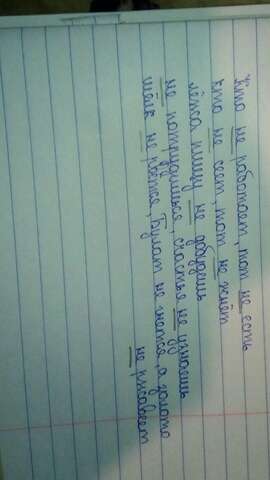 Кто не работает, тот не есть
кто не сеет, тот не жнёт
лёжа пищу не добудешь
не потрудишься, счастье не узнаешь
шёлк не рвётся, булат не гнётся, а золото
не ржавеет